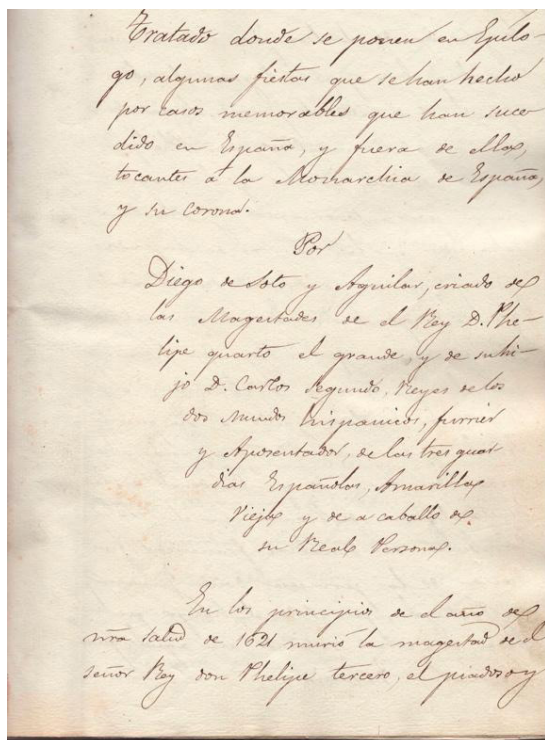 Tratado donde se ponen en Epilo-
go, algunas fiestas que se han hecho
por casos memorables que han suce
dido en España, y fuera de ella,
tocantes á la Monarchia de España,
y su corona.
Por
Diego de Soto y Aguilar, criado de
las Magestades de el Rey D. Phe-
lipe quarto el grande, y de su hi-
jo D. Carlos Segundo, Reyes de los
dos Mundos hispanicos, furrier
y Aposentador, de las tres guar
dias Españolas, Amarilla,
Vieja y de a caballo de
su Real Persona.
En los principios de el año de
nrã salud de 1621 murió la magestad de el
señor Rey don Phelipe tercero, el piadoso y